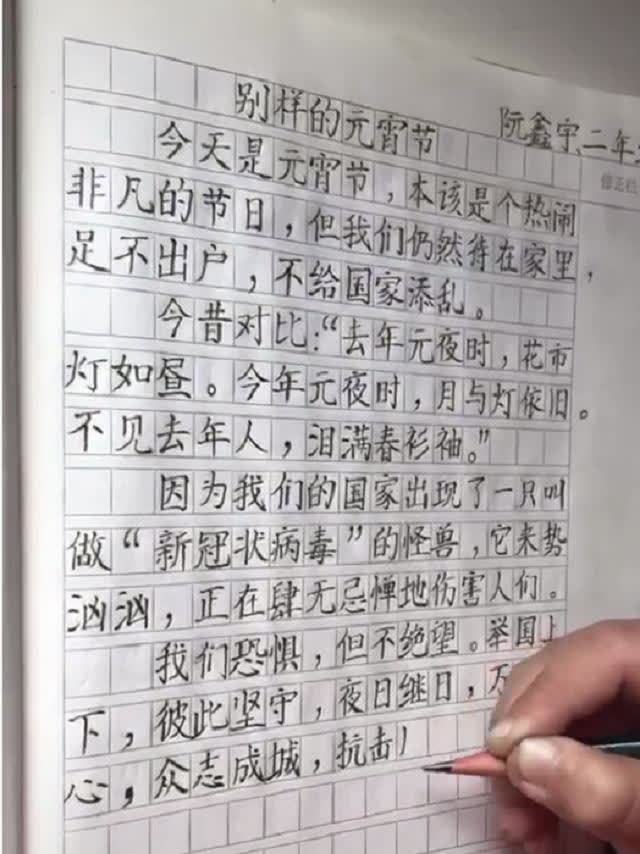 别样的元宵节
阮鑫宇 二年
今天是元宵节，本该是个热闹
非凡的节日，但我们仍然待在家里，
足不出户，不给国家添乱。
今昔对比：“去年元夜时，花市
灯如昼。今年元夜时，月与灯依旧。
不见去年人，泪满春衫袖。”
因为我们的国家出现了一只叫
做“新冠状病毒”的怪兽，它来势
汹汹，正在肆无忌惮地伤害人们。
我们恐惧，但不绝望。举国上
下，彼此坚守，夜日继日，万
心，众志成城，抗击